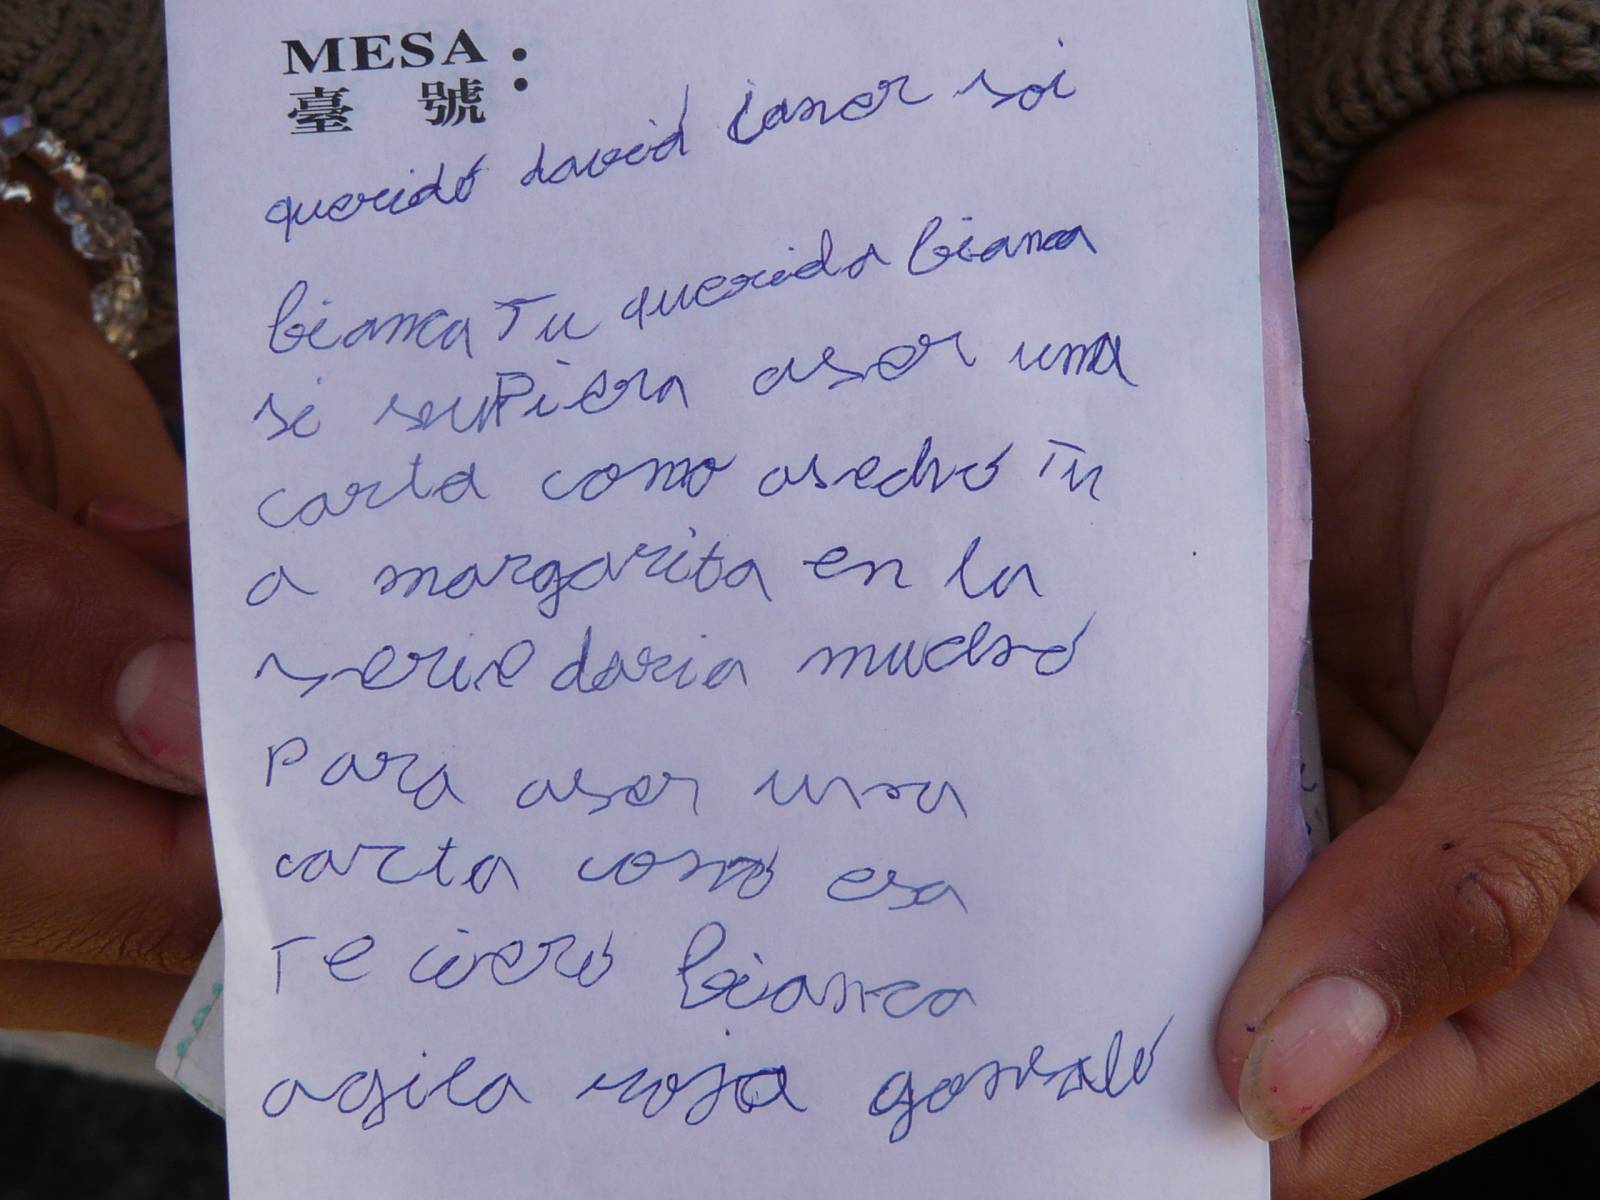 MESA:
臺號
querido david janer soi
bianca Tu querida bianca
si suPiera aser una
carta como asecho Tu
a margarita en la
serie daria mucho
Para aser una
carta como esa
Te ciero bianca
agila roja gonsalo